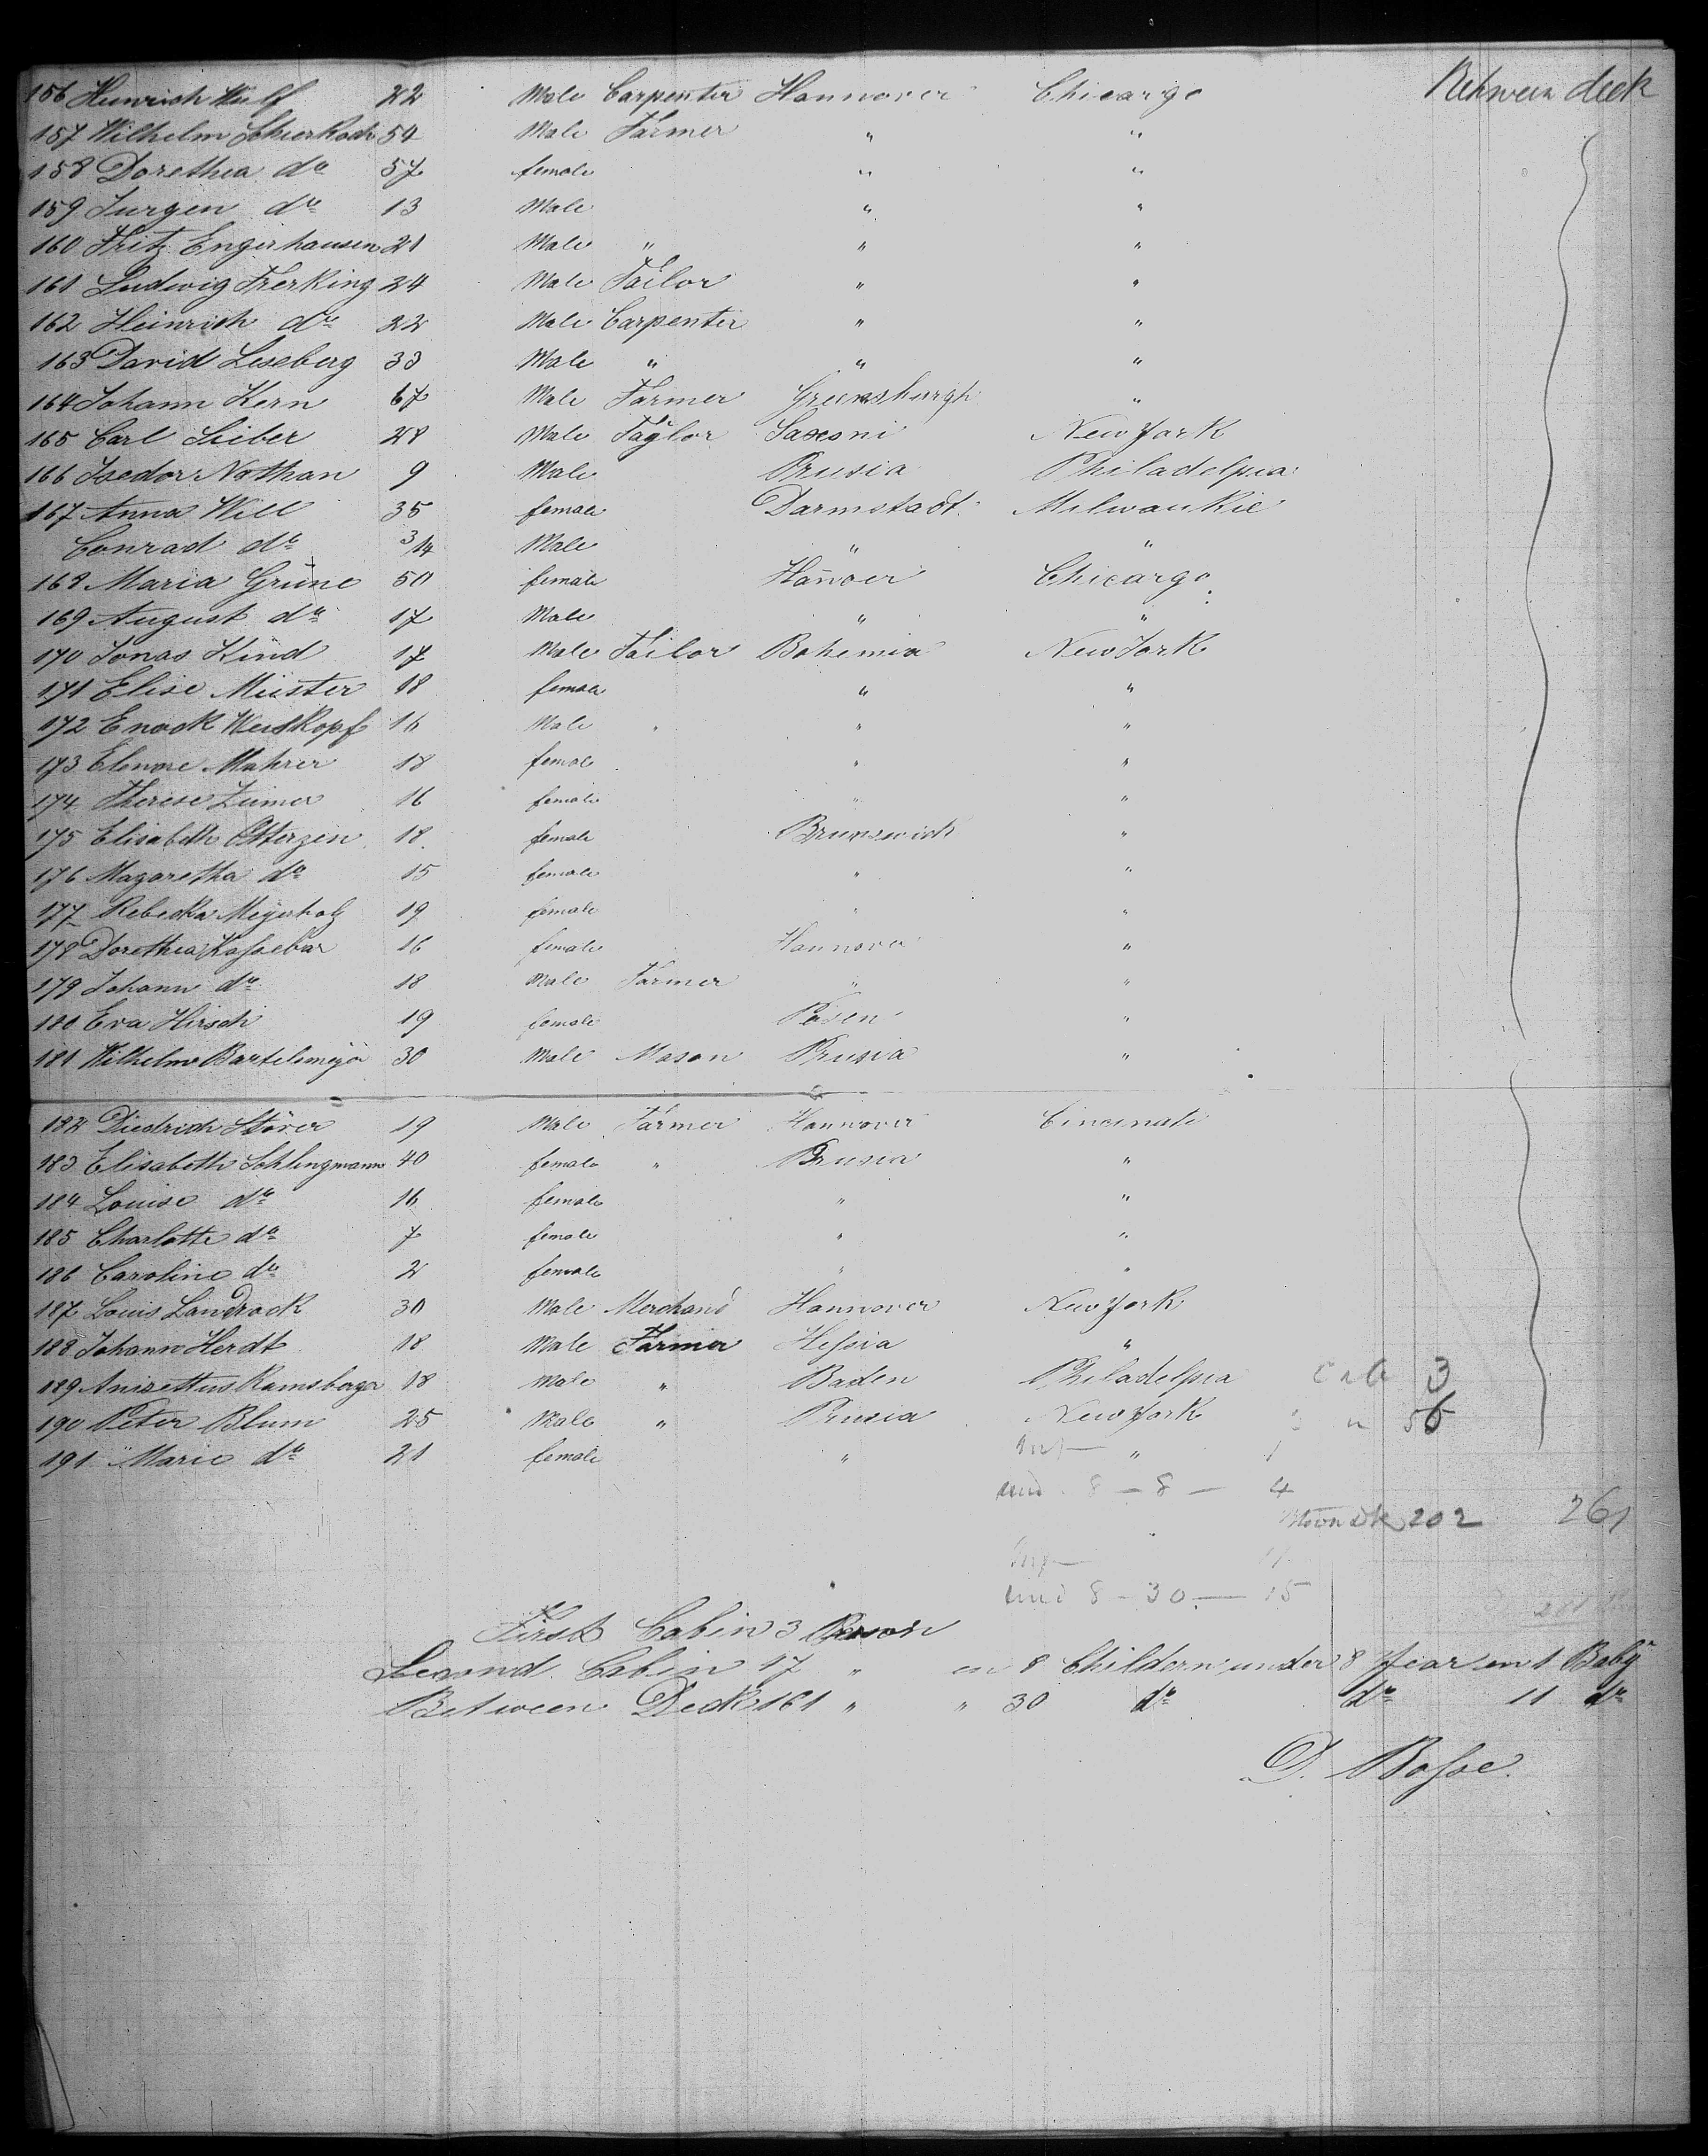 156 Heinrich Wulf 22 Male Carpenter Hannover Chicargo Betwen deck
157 Wilhelm Schierkoch 54 Male Farmer " "
158 Dorethea do 57 female " "
159 Jurgen do 13 Male " "
160 Fritz Engerhausen 21 Male " " "
161 Ludwig Frerking 24 Male Tailor " "
162 Heinrich do 22 Male Carpenter " "
163 David Leseberg 33 Male " " "
164 Johann Kern 67 Male Farmer "
165 Carl Lieber 28 Male Taylor Saxoni New York
166 Isedor Nathan 9 Male Prusia Philadelpia
167 Anna Will 35 female Darmstadt Milwaukie
Conrad do 3/4 Male " "
168 Maria Grüne 50 female Hanoer Chicargo
169 August do 17 Male " "
170 Jonas Kind 17 Male Tailor Bohemia New York
171 Elise Müster 18 female " "
172 Enock Weiskopf 16 Male " " "
173 Elenore Mahrer 18 female " "
174 Therese Ziemer 16 female " "
175 Elisabeth 18 female Brunswick "
176 Magaretha do 15 female " "
177 Rebecka Meyerholz 19 female " "
178 Dorethea Kassebar 16 female Hannover "
179 Johann do 18 Male Farmer " "
180 Eva Hirsch 19 female Posen "
181 Wilhelm Bartelsmeyer 30 Male Mason Prusia "
182 Diedrich Stöver 19 Male Farmer Hannover Cincinati
183 Elisabeth Schlingmann 40 female " Prusia "
184 Louise do 16 female " "
185 Charlotte do 7 female " "
186 Caroline do 2 female " "
187 Louis Landrock 30 Male Merchand Hannover New York
188 Johann Herdt 18 Male Farmer Hessia "
189 Anisettus Ramsberger 18 Male " Baden Philadelpia Cab 3
190 Peter Blum 25 Male " Prusia New York
191 Marie do 21 female " "
und 8 — 8 — 4
202 261
und 8 - 30 — 15
First Cabin 3 Person
Second Cabin 17 " en 8 Childern under 8 Year en 1 Baby
Between Deck 161 " " 30 do do 11 do
D. Bosse.